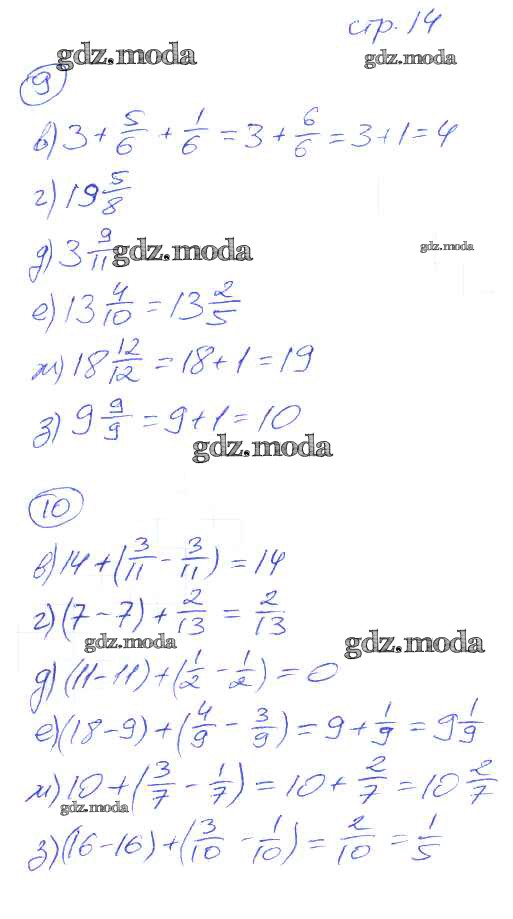 стр. 14
gdz.moda gdz.moda
9
в) 3 + 5/6 + 1/6 = 3 + 6/6 = 3 + 1 = 4
г) 19 5/8
д) 3 9/11 gdz.moda gdz.moda
е) 13 4/10 = 13 2/5
ж) 18 12/12 = 18 + 1 = 19
з) 9 9/9 = 9 + 1 = 10
gdz.moda
10
в) 14 + (3/11 - 3/11) = 14
г) (7 - 7) + 2/13 = 2/13
gdz.moda gdz.moda
д) (11 - 11) + (1/2 - 1/2) = 0
е) (18 - 9) + (4/9 - 3/9) = 9 + 1/9 = 9 1/9
ж) 10 + (3/7 - 1/7) = 10 + 2/7 = 10 2/7
gdz.moda
з) (16 - 16) + (3/10 - 1/10) = 2/10 = 1/5